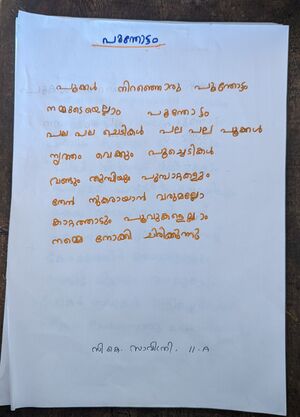 പൂന്തോട്ടം
പൂക്കൾ നിറഞ്ഞൊരു പൂന്തോട്ടം
നമ്മുടെയെല്ലാം പൂന്തോട്ടം
പല പല ചെടികൾ പല പല പൂക്കൾ
നൃത്തം വെക്കും പൂച്ചെടികൾ
വണ്ടും തുമ്പിയും പൂമ്പാറ്റകളും
തേൻ നുകരായാൻ വരുമല്ലോ
കാറ്റത്താടും പൂവുകളെല്ലാം
നമ്മെ നോക്കി ചിരിക്കുന്നു
സി.കെ. സാവിത്രി. II-A